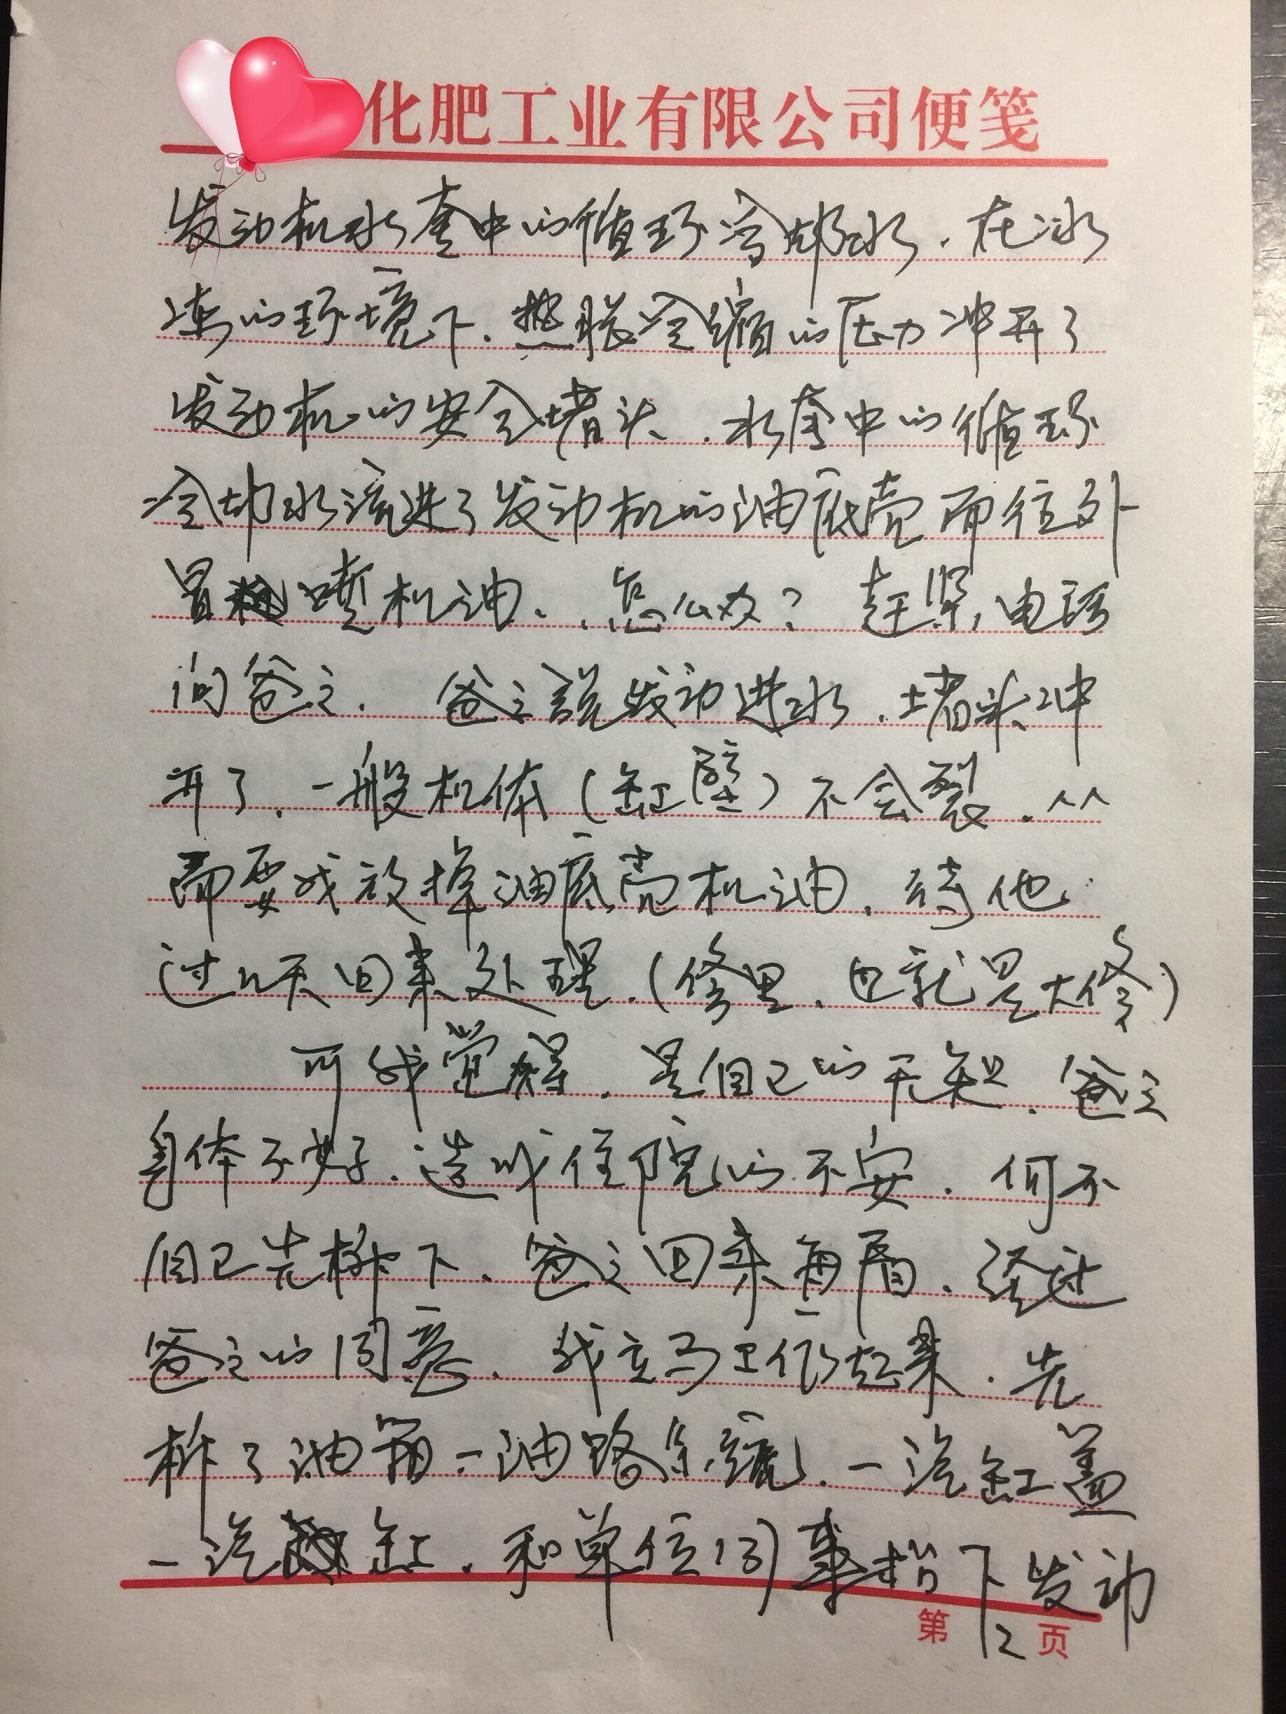 化肥工业有限公司便笺
发动机水套中的循环冷却水.在冰
冻的环境下.热胀冷缩的压力冲开了
发动机的安全堵头.水套中的循环
冷却水流进了发动机的油底壳而往外
冒喷机油..怎么办?赶紧电话
问爸之.爸之説发动进水.堵头冲
开了.一般机体(缸壁)不会裂.
而要我放掉油底壳机油.待他
过几天回来处理.(修里.也就是大修)
可我觉得.是自己的无知.爸之
身体不好.造成住院的不安.何不
自己先拆下.爸之回来再看.经过
爸之的同意.我立马工作起来.先
拆了油箱－油路系统.－汽缸盖
－汽缸.和单位同事抬下发动
第12页